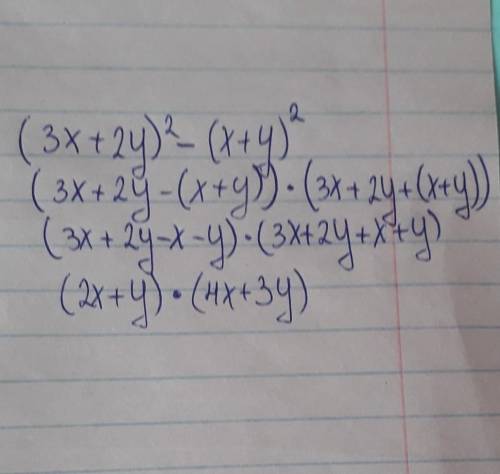 (3x+2y)²-(x+y)²
(3x+2y-(x+y))·(3x+2y+(x+y))
(3x+2y-x-y)·(3x+2y+x+y)
(2x+y)·(4x+3y)